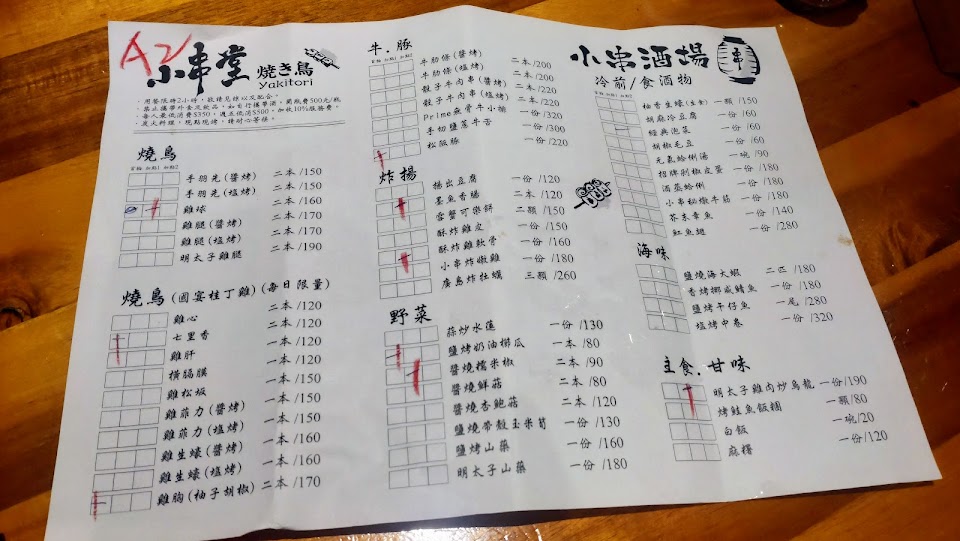 A2
小串堂 焼き鳥
Yakitori
·用餐限時2小時,敬請見諒以及配合。
·禁止攜帶外食及飲品,如自行攜帶酒,開瓶費500元/瓶
·每人最低消費$350,週五低消$500,加收10%服務費。
·炭火料理,現點現烤,請耐心等候。
燒鳥
首輪 加點1 加點2
手羽先(醬烤) 二本/150
手羽先(塩烤) 二本/150
雞球 二本/160
雞腿(醬烤) 二本/170
雞腿(塩烤) 二本/170
明太子雞腿 二本/190
燒鳥(國宴桂丁雞)(每日限量)
雞心 二本/120
七里香 一本/120
雞肝 一本/120
橫膈膜 一本/150
雞松坂 一本/150
雞菲力(醬烤) 一本/150
雞菲力(塩烤) 一本/150
雞生蠔(醬烤) 一本/160
雞生蠔(塩烤) 一本/160
雞胸(柚子胡椒) 二本/170
牛.豚
首輪 加點1 加點2
牛肋條(醬烤) 二本/200
牛肋條(塩烤) 二本/200
骰子牛肉串(醬烤) 二本/220
骰子牛肉串(塩烤) 二本/220
Prime無骨牛小排 一份/320
手切鹽蔥牛舌 一份/300
松阪豚 一份/220
炸揚
揚出豆腐 一份/120
墨魚香腸 二本/120
雪蟹可樂餅 二顆/150
酥炸雞皮 一份/150
酥炸雞軟骨 一份/160
小串炸嫩雞 一份/180
廣島炸牡蠣 三顆/260
野菜
蒜炒水蓮 一份/130
鹽烤奶油櫛瓜 一本/80
醬燒糯米椒 二本/90
醬燒鮮菇 二本/80
醬燒杏鮑菇 二本/120
鹽燒帶殼玉米筍 一份/130
鹽烤山藥 一份/160
明太子山藥 一份/180
小串酒場 串
冷前/食酒物
首輪 加點1 加點2
柚香生蠔(生食) 一顆/150
胡麻冷豆腐 一份/60
經典泡菜 一份/60
胡椒毛豆 一份/60
元氣蛤蜊湯 一碗/90
招牌剁椒皮蛋 一份/180
酒蒸蛤蜊 一份/180
小串秘燉牛筋 一份/180
芥末章魚 一份/140
魟魚翅 一份/280
海味
鹽燒海大蝦 二匹/180
香烤挪威鯖魚 一份/180
鹽烤午仔魚 一尾/280
塩烤中卷 一份/320
主食.甘味
明太子雞肉炒烏龍 一份/190
烤鮭魚飯糰 一顆/80
白飯 一碗/20
麻糬 一份/120